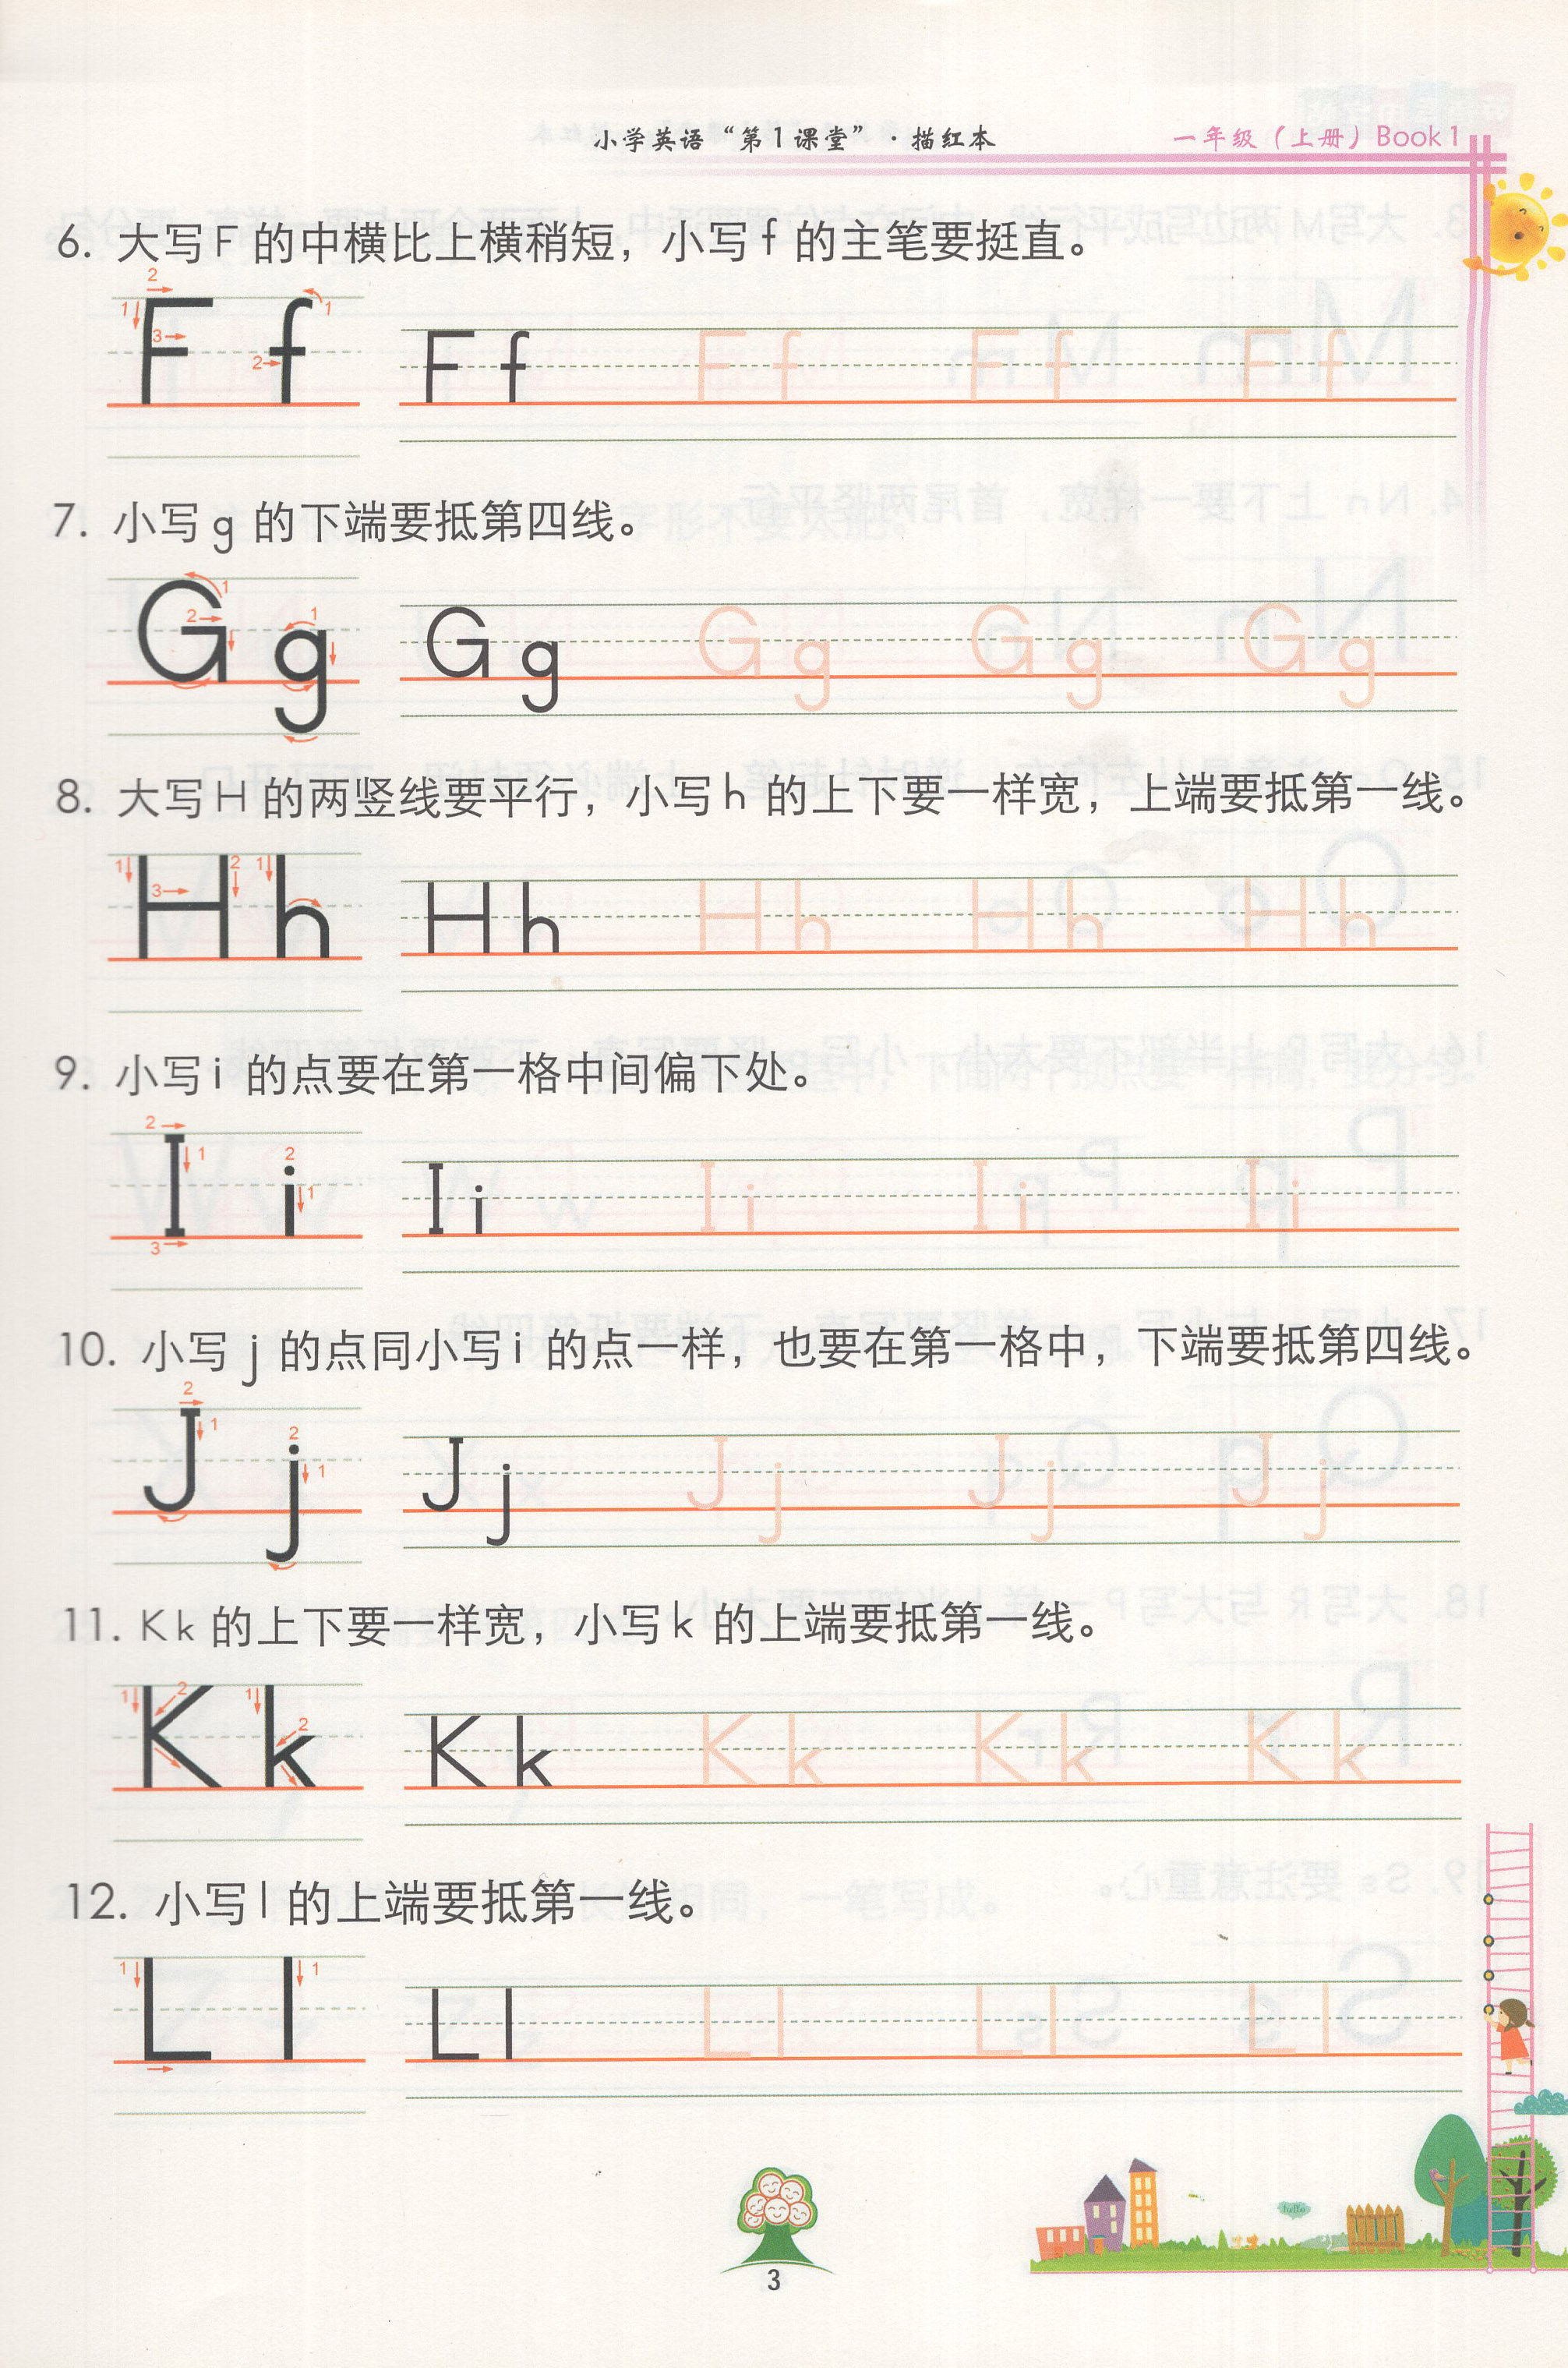 小学英语“第1课堂”·描红本
一年级（上册）Book1
6. 大写F的中横比上横稍短，小写f的主笔要挺直。
F f F f F f F f F f
7. 小写g的下端要抵第四线。
G g G g G g G g G g
8. 大写H的两竖线要平行，小写h的上下要一样宽，上端要抵第一线。
H h H h H h H h H h
9. 小写i的点要在第一格中间偏下处。
I i I i I i I i I i
10. 小写j的点同小写i的点一样，也要在第一格中，下端要抵第四线。
J j J j J j J j J j
11. Kk的上下要一样宽，小写k的上端要抵第一线。
K k K k K k K k K k
12. 小写l的上端要抵第一线。
L l L l L l L l L l
hello
3